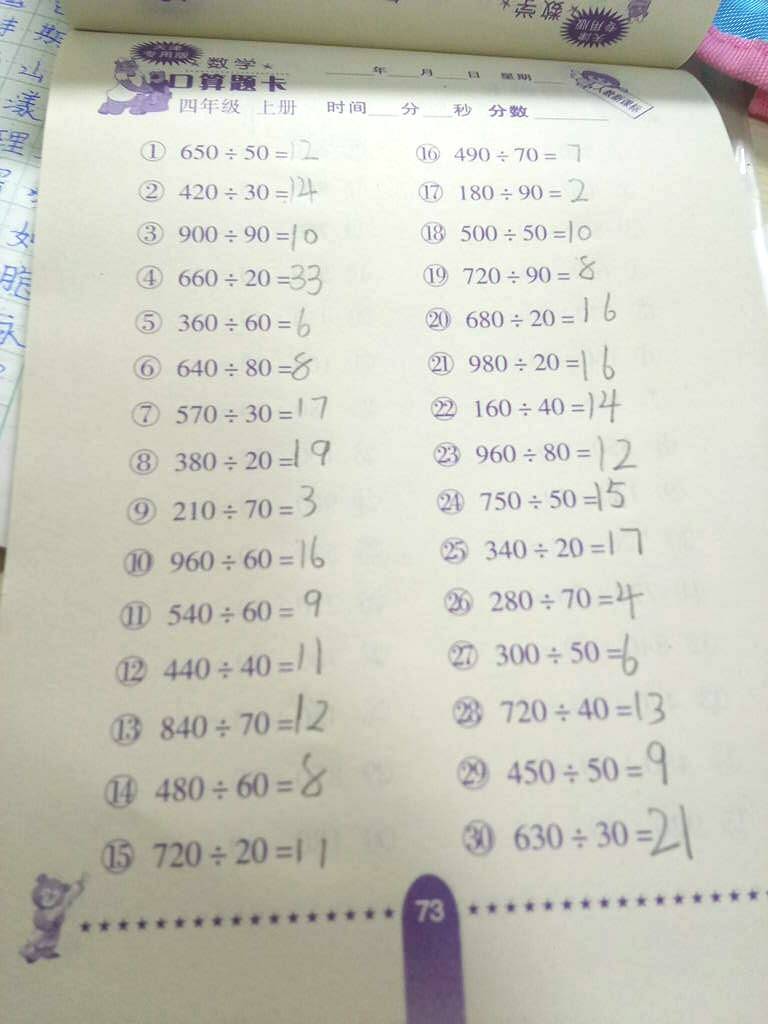 数学
专用版
数学
口算题卡
年 月 日 星期
四年级 上册 时间 分 秒 分数
① 650÷50=12
② 420÷30=14
③ 900÷90=10
④ 660÷20=33
⑤ 360÷60=6
⑥ 640÷80=8
⑦ 570÷30=17
⑧ 380÷20=19
⑨ 210÷70=3
⑩ 960÷60=16
⑪ 540÷60=9
⑫ 440÷40=11
⑬ 840÷70=12
⑭ 480÷60=8
⑮ 720÷20=11
⑯ 490÷70=7
⑰ 180÷90=2
⑱ 500÷50=10
⑲ 720÷90=8
⑳ 680÷20=16
㉑ 980÷20=16
㉒ 160÷40=14
㉓ 960÷80=12
㉔ 750÷50=15
㉕ 340÷20=17
㉖ 280÷70=4
㉗ 300÷50=6
㉘ 720÷40=13
㉙ 450÷50=9
㉚ 630÷30=21
73